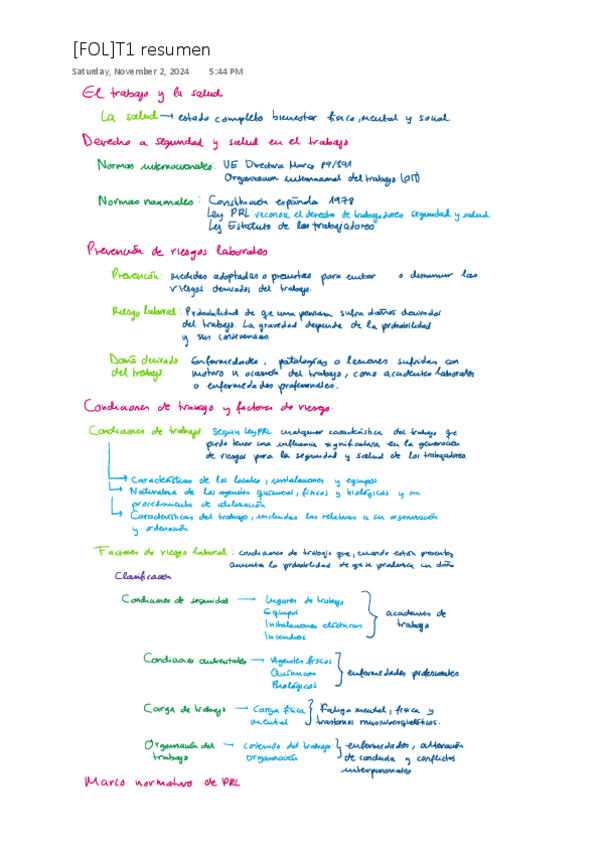 [FOL]T1 resumen
Saturday, November 2, 2024 5:44 PM
El trabajo y la salud
La salud → estado completo bienestar físico, mental y social.
Derecho a seguridad y salud en el trabajo
Normas internacionales: UE Directiva Marco 89/391
Organización internacional del trabajo (OIT)
Normas nacionales: Constitución española 1978
Ley PRL reconoce el derecho de trabajadores seguridad y salud.
Ley Estatuto de los trabajadores
Prevención de riesgos laborales
Prevención: medidas adoptadas o previstas para evitar o disminuir los
riesgos derivados del trabajo.
Riesgo laboral: Probabilidad de que una persona sufra daños derivados
del trabajo. La gravedad depende de la probabilidad
y sus consecuencias.
Daño derivado Enfermedades, patologías o lesiones sufridas con
del trabajo. motivo u ocasión del trabajo, como accidentes laborales
o enfermedades profesionales.
Condiciones de trabajo y factores de riesgo.
Condiciones de trabajo según Ley PRL cualquier característica del trabajo que
pueda tener una influencia significativa en la generación
de riesgos para la seguridad y salud de los trabajadores.
→ Características de los locales, instalaciones y equipos
→ Naturaleza de los agentes químicos, físicos y biológicos y su
procedimiento de utilización
→ Características del trabajo, incluidas las relativas a su organización
y ordenación
Factores de riesgo laboral: condiciones de trabajo que, cuando están presentes,
aumenta la probabilidad de que se produzca un daño
Clasificación
Condiciones de seguridad → Lugares de trabajo
Equipos
Instalaciones eléctricas
Incendios
accidentes de
trabajo
Condiciones ambientales → Agentes físicos
Químicos
Biológicos
enfermedades profesionales
Carga de trabajo → Carga física Fatiga mental, física y
mental trastornos musculoesqueléticos.
Organización del → contenido del trabajo enfermedades, alteración
trabajo organización de conducta y conflictos
interpersonales
Marco normativo de PRL